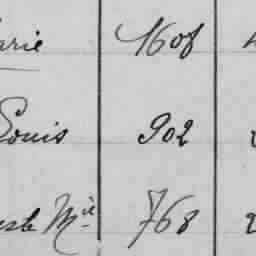 arie 1608
Louis 902
Mie 768